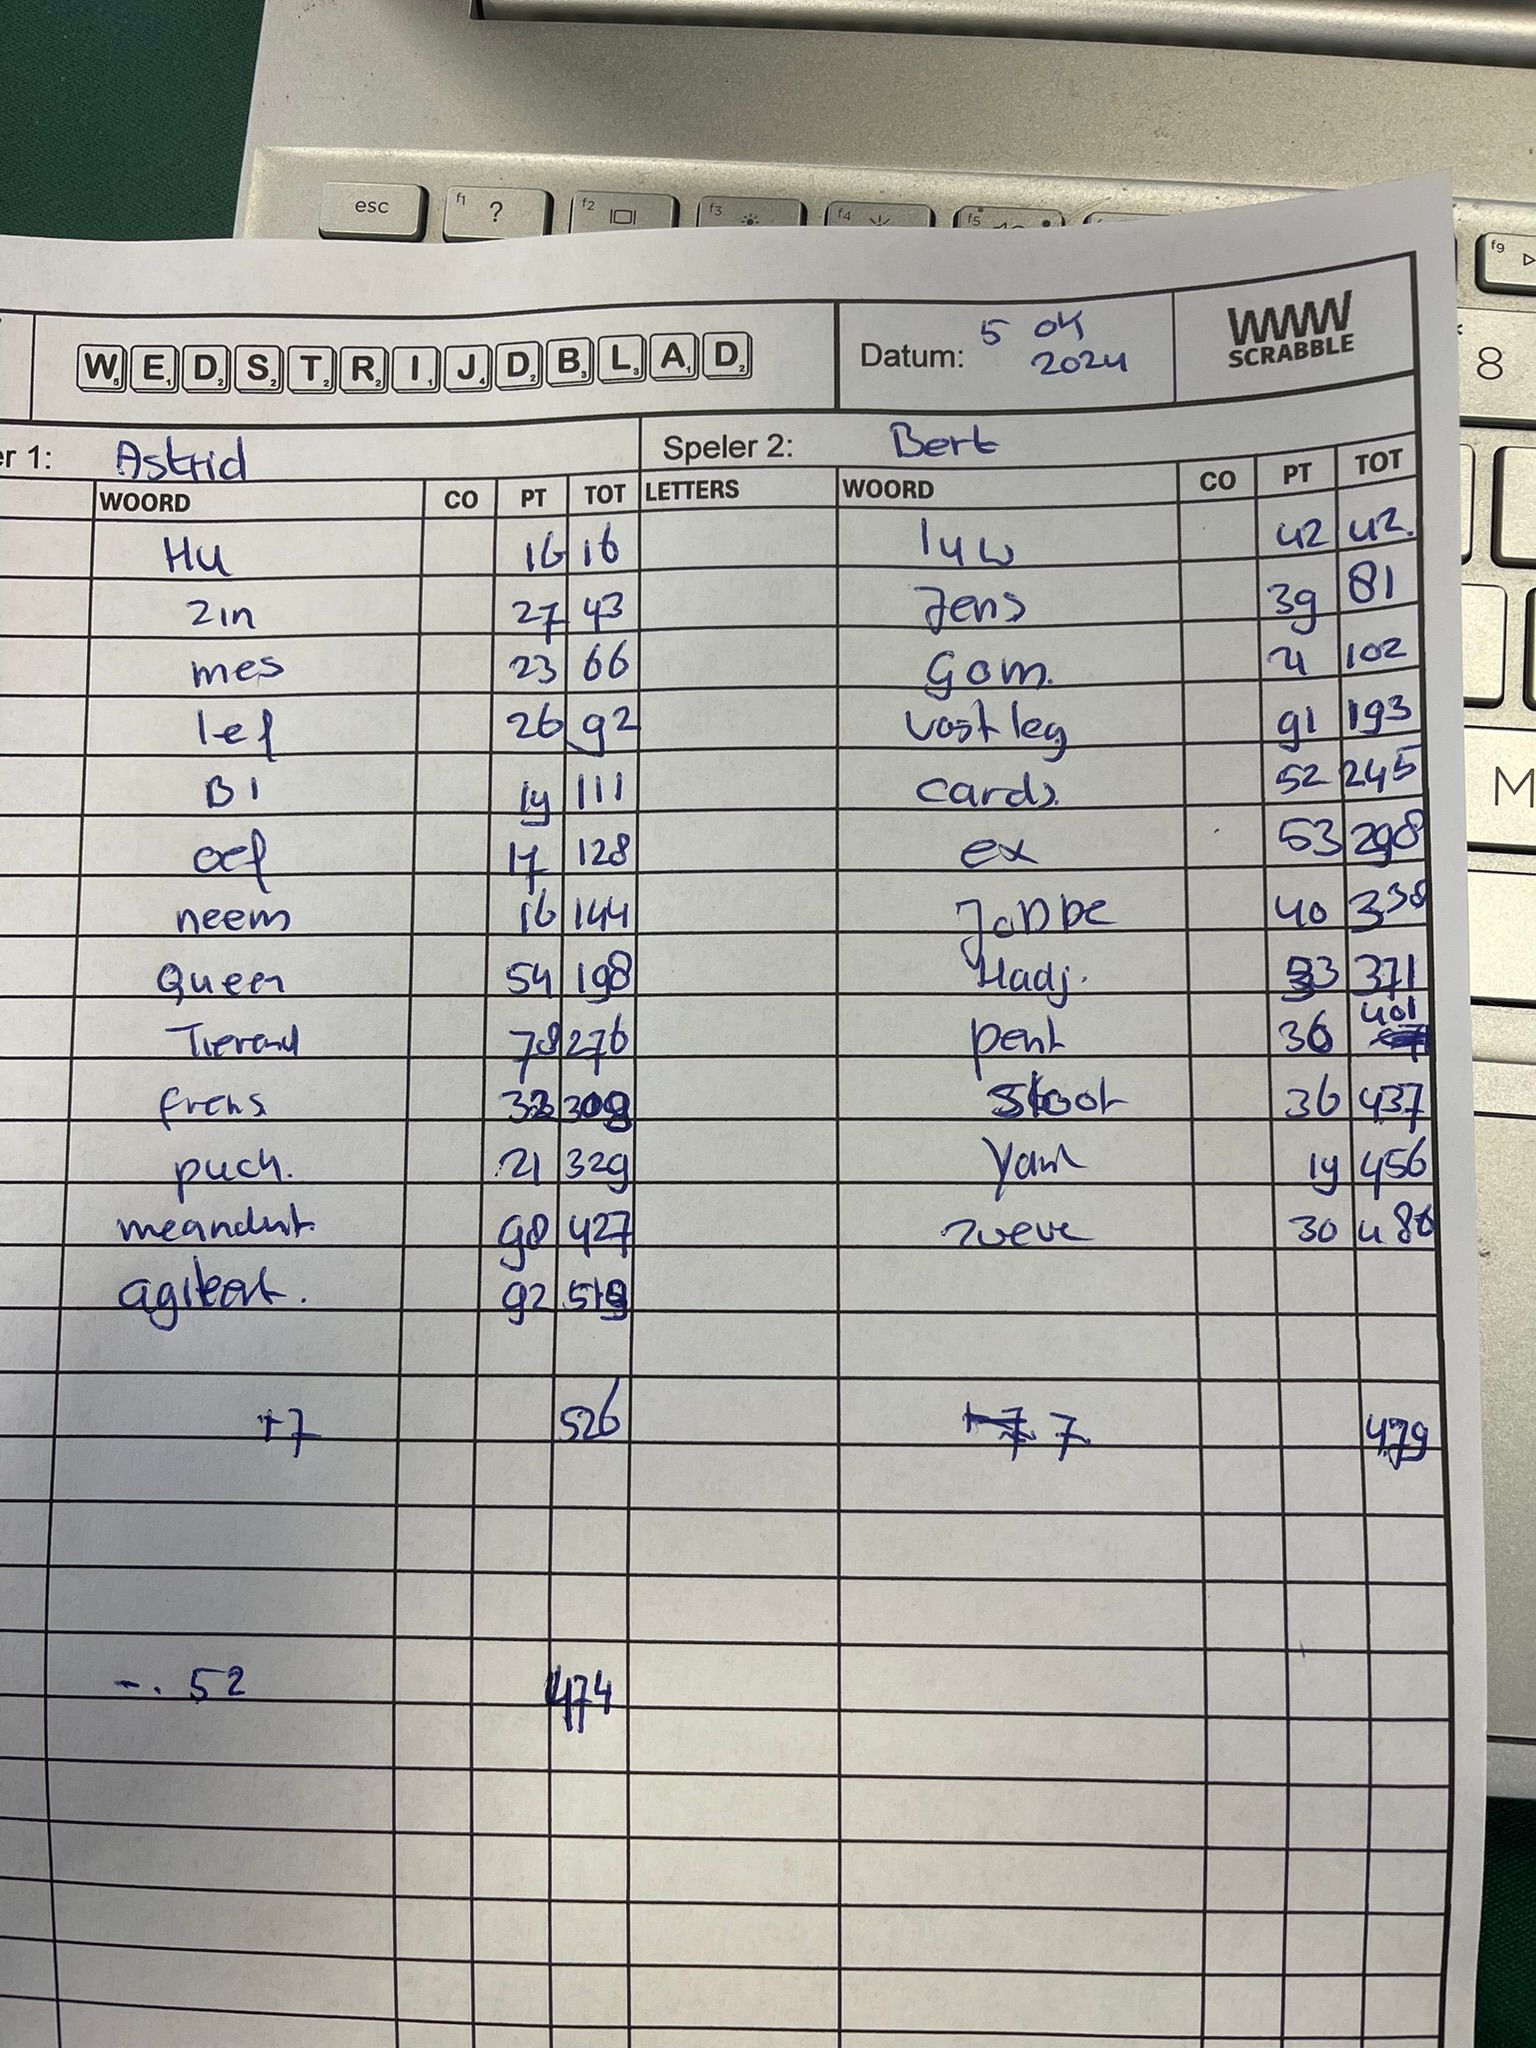 esc f1 ? f2 f3 f4 f5 f9
8
M
WEDSTRIJDBLAD
Datum: 5 ok 2024
WWW SCRABBLE
er 1: Astrid
Speler 2: Bert
WOORD CO PT TOT LETTERS WOORD CO PT TOT
Hu 16 16 luw 42 42.
zin 27 43 Jens 39 81
mes 23 66 Gom. 21 102
lef 26 92 vastleg 91 193
BI 19 111 cards. 52 245
oef 17 128 ex 53 298
neem 16 144 40 338
Queen 54 198 Hadj. 33 371
78 276 pent 30 401
frens 309 36 437
puch. 21 329 19 456
98 427 30 486
92 519
+7 526 7 479
-. 52 474